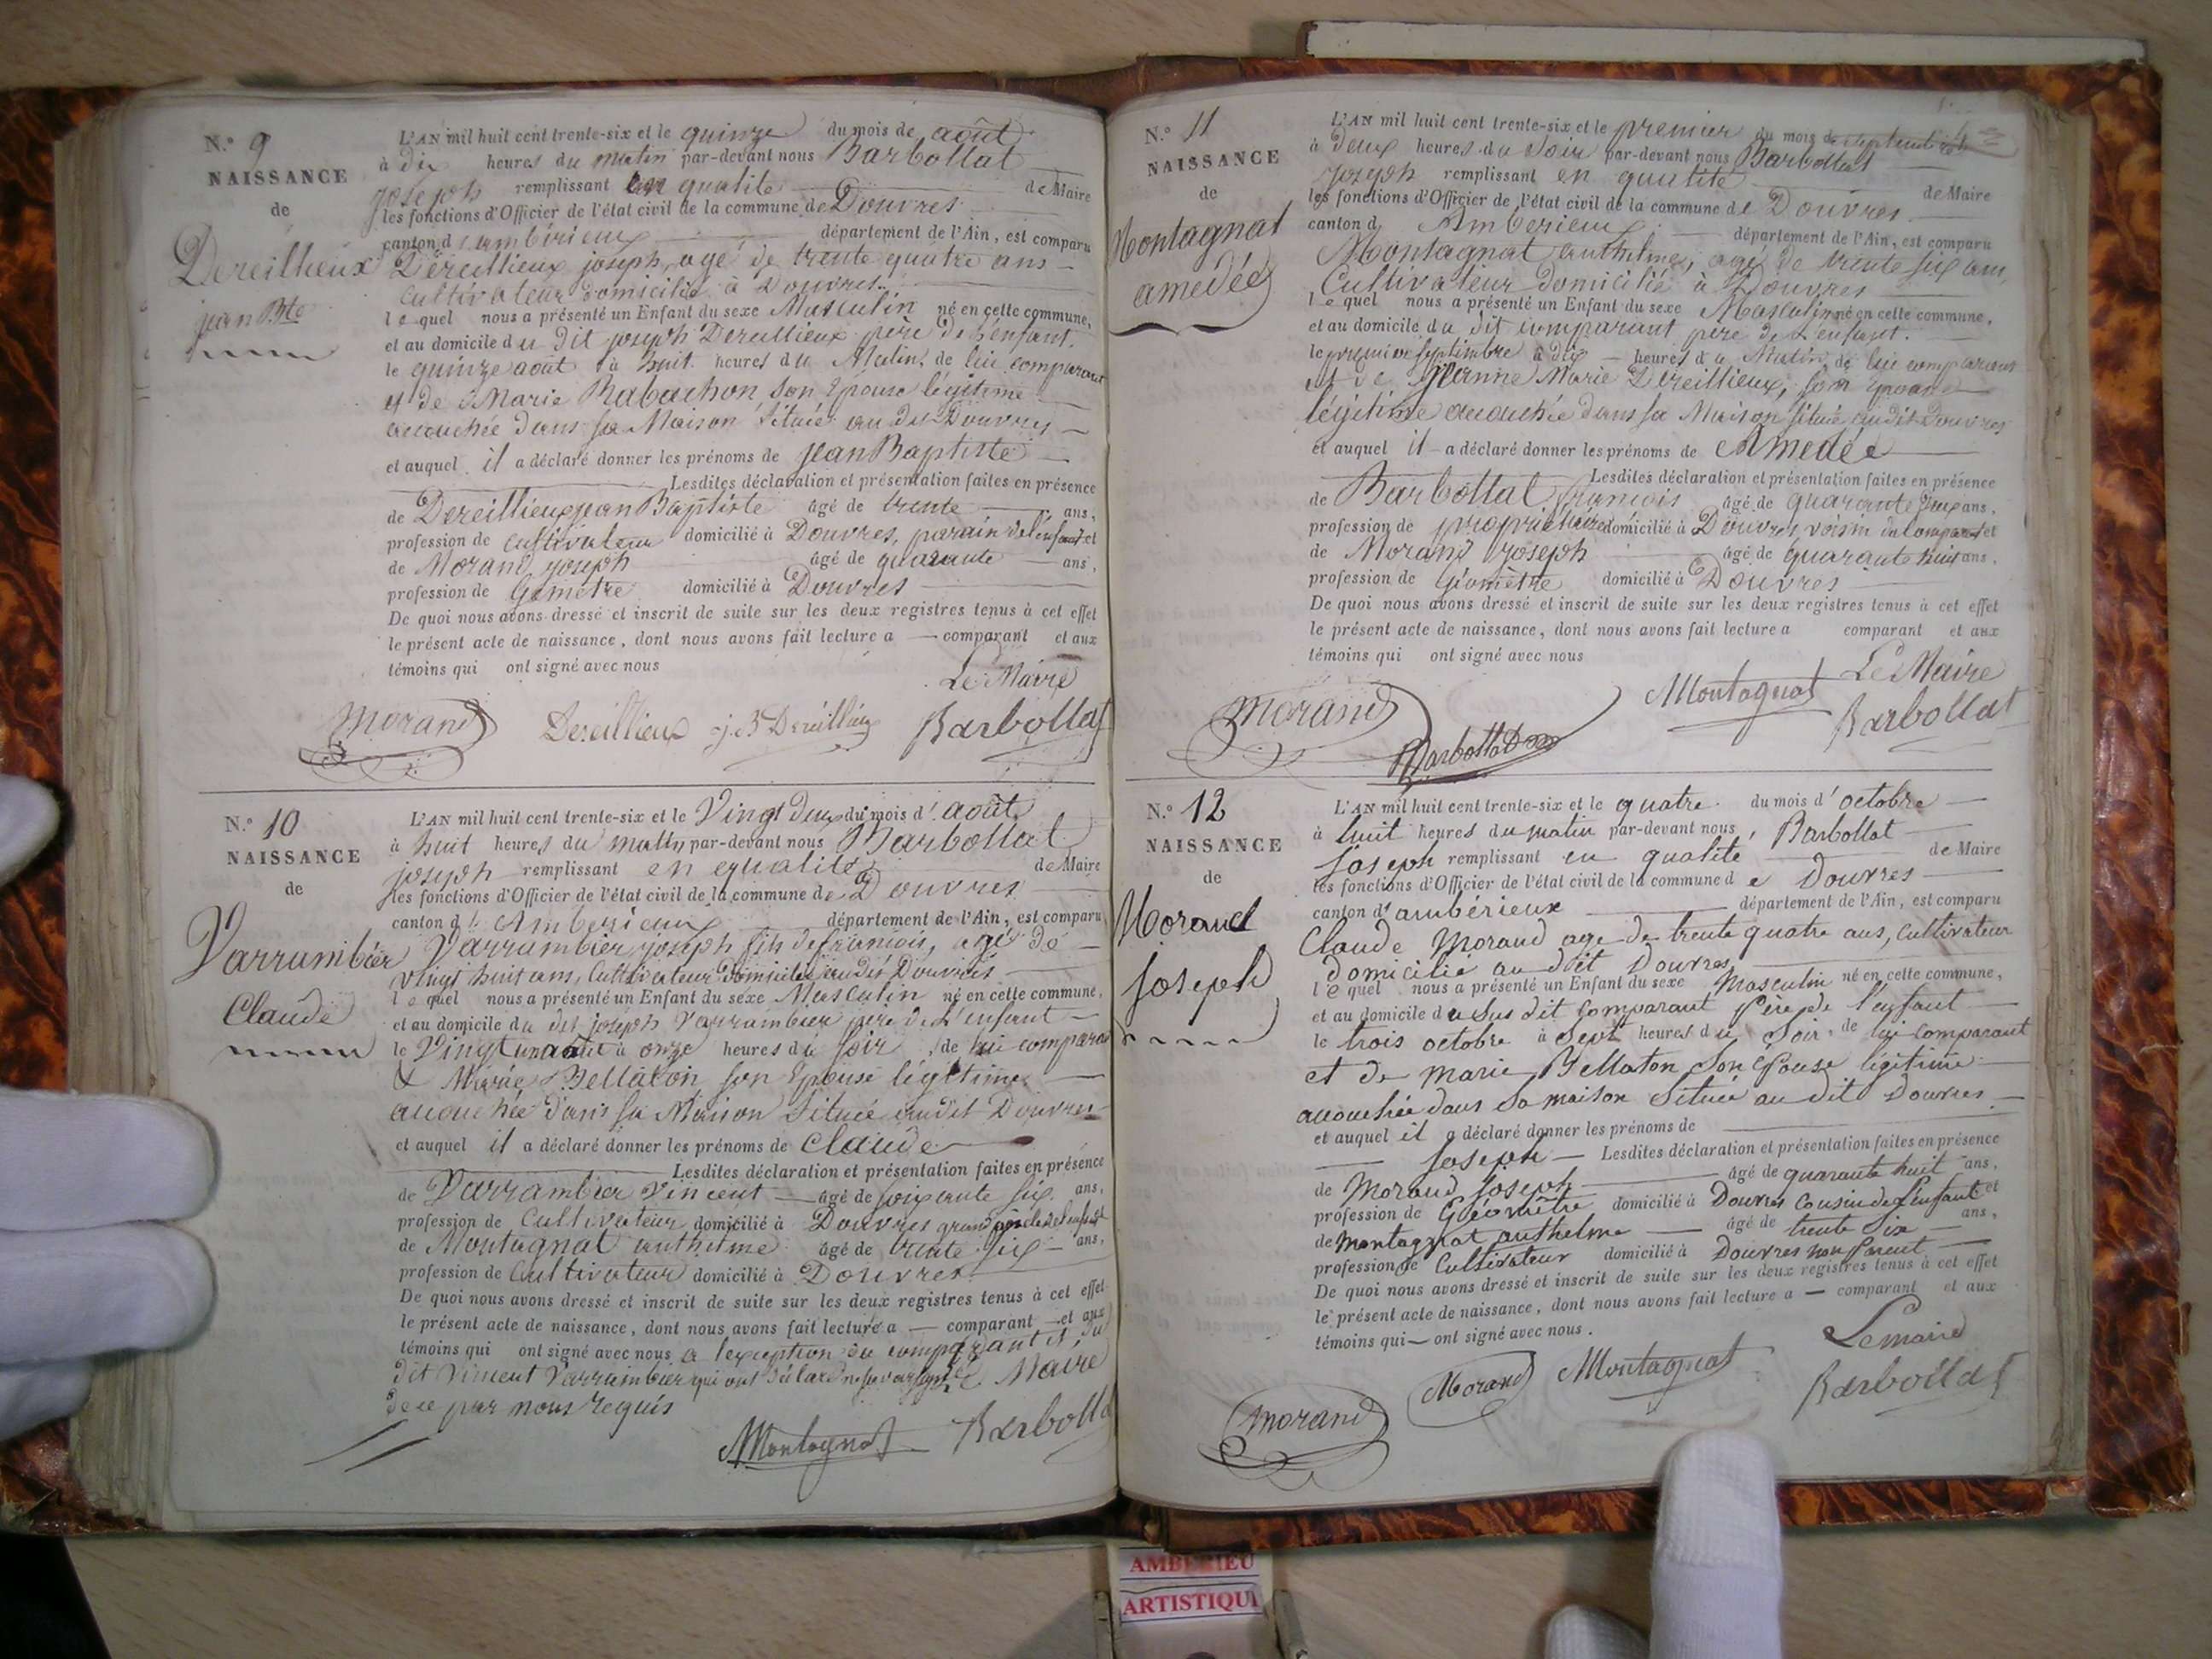 N.° 9
NAISSANCE
de
Dereillieux
jean Bte
L'AN mil huit cent trente-six et le quinze du mois de août
à dix heures du matin par-devant nous Barbollat
joseph remplissant en qualité de Maire
les fonctions d'Officier de l'état civil de la commune de Douvres
canton d'ambérieux département de l'Ain, est comparu
Dereillieux joseph, agé de trente quatre ans
Cultivateur domicilié à Douvres.
lequel nous a présenté un Enfant du sexe Masculin né en cette commune,
et au domicile du dit joseph Dereillieux père de l'enfant.
le quinze août à huit heures du Matin, de lui comparant
et de Marie Rabachon son Epouse légitime
accouchée dans sa Maison située au dit Douvres
et auquel il a déclaré donner les prénoms de jean Baptiste
Lesdites déclaration et présentation faites en présence
de Dereillieux jean Baptiste âgé de trente ans,
profession de cultivateur domicilié à Douvres, parain de l'enfant et
de Morand joseph âgé de quarante ans,
profession de Géomètre domicilié à Douvres
De quoi nous avons dressé et inscrit de suite sur les deux registres tenus à cet effet
le présent acte de naissance, dont nous avons fait lecture a comparant et aux
témoins qui ont signé avec nous
Le Maire
Morand Dereillieux j. B Dereillieux Barbollat
N.° 10
NAISSANCE
de
Varrambier
Claude
L'AN mil huit cent trente-six et le Vingt deux du mois d'août
à huit heures du matin par-devant nous Barbollat
joseph remplissant en qualité de Maire
les fonctions d'Officier de l'état civil de la commune de Douvres
canton d'Amberieux département de l'Ain, est comparu
Varrambier joseph fils de francois, agé de
vingt huit ans, Cultivateur domicilié au dit Douvres
lequel nous a présenté un Enfant du sexe Masculin né en cette commune,
et au domicile du dit joseph Varrambier père de L'enfant
le Vingt un août à onze heures du soir, de lui comparant
& Marie Bellaton son Epouse légitime
accouchée dans sa Maison située au dit Douvres
et auquel il a déclaré donner les prénoms de Claude
Lesdites déclaration et présentation faites en présence
de Varrambier Vincent âgé de soixante six ans,
profession de Cultivateur domicilié à Douvres grand père de l'enfant et
de Montagnat anthelme âgé de trente six ans,
profession de Cultivateur domicilié à Douvres
De quoi nous avons dressé et inscrit de suite sur les deux registres tenus à cet effet
le présent acte de naissance, dont nous avons fait lecture a comparant et aux
témoins qui ont signé avec nous a l'exception du comparant et du
dit Vincent Varrambier qui ont déclaré ne savoir signer Le Maire
de ce par nous requis
Montagnat Barbollat
N.° 11
NAISSANCE
de
Montagnat
amedée
L'AN mil huit cent trente-six et le premier du mois de septembre
à Deux heures du Soir par-devant nous Barbollat
joseph remplissant en qualité de Maire
les fonctions d'Officier de l'état civil de la commune de Douvres
canton d Amberieux département de l'Ain, est comparu
Montagnat anthelme, agé de trente six ans
Cultivateur domicilié à Douvres
lequel nous a présenté un Enfant du sexe Masculin né en cette commune,
et au domicile du dit comparant père de L'enfant.
le premier septembre à dix heures du Matin, de lui comparant
et de Jeanne Marie Dereillieux, son Epouse
légitime accouchée dans sa Maison située au dit Douvres
et auquel il a déclaré donner les prénoms de Amedée
Lesdites déclaration et présentation faites en présence
de Barbollat francois âgé de quarante deux ans,
profession de propriétaire domicilié à Douvres, voisin du comparant et
de Morand joseph âgé de quarante huit ans,
profession de Géomètre domicilié à Douvres
De quoi nous avons dressé et inscrit de suite sur les deux registres tenus à cet effet
le présent acte de naissance, dont nous avons fait lecture a comparant et aux
témoins qui ont signé avec nous
Le Maire
Morand Barbollat Montagnat Barbollat
N.° 12
NAISSANCE
de
Morand
Joseph
L'AN mil huit cent trente-six et le quatre du mois d'octobre
à huit heures du matin par-devant nous, Barbollat
Joseph remplissant en qualité de Maire
les fonctions d'Officier de l'état civil de la commune de Douvres
canton d'ambérieux département de l'Ain, est comparu
Claude Morand age de trente quatre ans, Cultivateur
domicilié au dit Douvres,
lequel nous a présenté un Enfant du sexe Masculin né en cette commune,
et au domicile du Sus dit Comparant Père de l'enfant
le trois octobre à Sept heures du Soir, de lui Comparant
et de Marie Bellaton Son Epouse légitime
accouchée dans Sa maison Située au dit Douvres
et auquel il a déclaré donner les prénoms de
Joseph Lesdites déclaration et présentation faites en présence
de Morand Joseph âgé de quarante huit ans,
profession de Géomètre domicilié à Douvres Cousin de l'enfant et
de Montagnat anthelme âgé de trente Six ans,
profession de Cultivateur domicilié à Douvres non Parent
De quoi nous avons dressé et inscrit de suite sur les deux registres tenus à cet effet
le présent acte de naissance, dont nous avons fait lecture a comparant et aux
témoins qui ont signé avec nous.
Lemaire
Morand Morand Montagnat Barbollat
AMBERIEU
ARTISTIQU